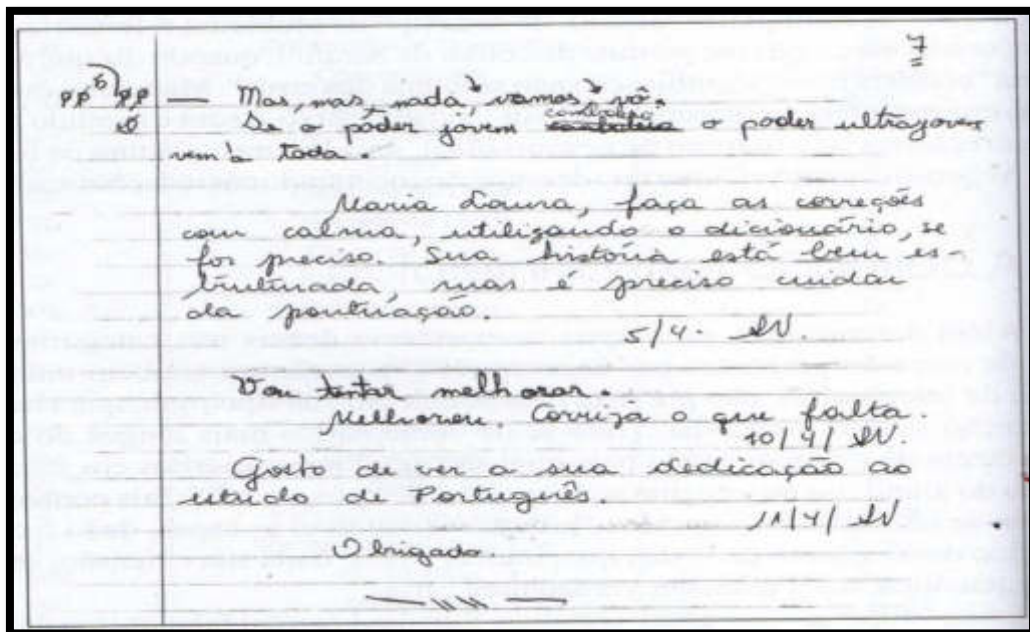 7
— Mas, mas, nada, vamos vó.
contralto
Se o poder jovem o poder ultrajovem
vem à toda.
Maria Laura, faça as correções
com calma, utilizando o dicionário, se
for preciso. Sua história está bem es-
truturada, mas é preciso cuidar
da pontuação.
5/4.
Vou tentar melhorar.
Melhorou. Corrija o que falta.
10/4/
Gosto de ver a sua dedicação ao
estudo de Português.
11/4/
Obrigada